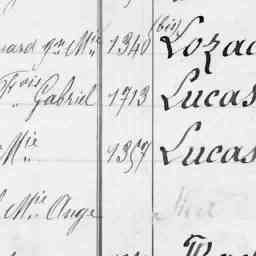 (bis)
nard Jn Mie 1340 Lozac
Fois Gabriel 1713 Lucas
Mie 1357 Lucas
Mie Ange